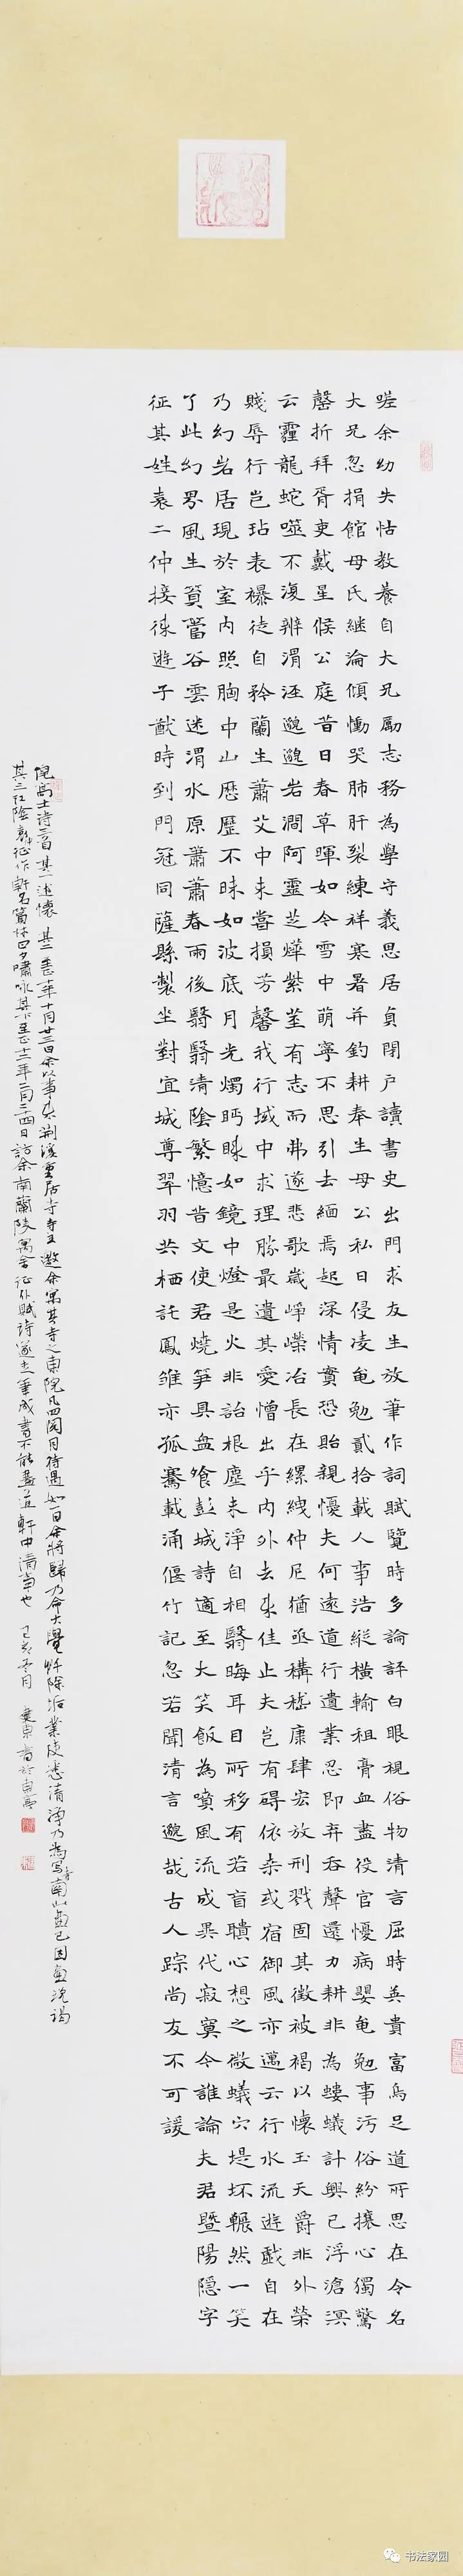 嗟余幼失怙教養自大兄勵志務為學守義思居貞閉戶讀書史出門求友生放筆作詞賦覽時多論評白眼視俗物清言屈時英貴富烏足道所思在令名
大兄忽捐館母氏繼淪傾慟哭肺肝裂練祥寒暑并釣耕奉生母公私日侵凌黽勉貳拾載人事浩縱橫輸租膏血盡役官憂病嬰黽勉事污俗紛攘心獨驚
罄折拜胥吏戴星候公庭昔日春草暉如今雪中萌寧不思引去緬焉起深情實恐貽親憂夫何遠道行遺業忍即弃吞聲還力耕非為螻蟻計興已浮滄溟
云霾龍蛇噬不復辨渭涇邈邈岩澗阿靈芝燁紫莖有志而弗遂悲歌歲崢嶸冶長在縲絏仲尼猶亟稱嵇康肆宏放刑戮固其徵被褐以懷玉天爵非外榮
賤辱行豈玷表襮徒自矜蘭生蕭艾中未嘗損芳馨我行域中求理勝最遺其愛憎出乎內外去來佳止夫豈有礙依桒或宿御風亦邁云行水流遊戲自在
乃幻岩居現於室內照胸中山歷歷不昧如波底月光燭眄睞如鏡中燈是火非詒根塵未淨自相翳晦耳目所移有若盲聵心想之微蟻穴堤坏冁然一笑
了此幻界風生篔簹谷雲迷渭水原蕭蕭春雨後翳翳清陰繁憶昔文使君燒笋具盤飧彭城詩適至大笑飯為噴風流成异代寂寞今誰論夫君暨陽隱字
征其姓袁二仲接徠遊子猷時到門冠同薩縣製坐對宜城尊翠羽共栖託鳳雏亦孤騫載涌偃竹記忽若聞清言邈哉古人踪尚友不可諼
倪高士詩三首其一述懷其二至正十年十月廿三日余以事來荆溪重居寺寺主邀余寓其寺之東院凡四閱月待遇如一日余將歸乃命大覺忏除垢業使悉清淨乃為寫寺南山畫已因畫說偈
其三江陰袁征作軒名篔林日夕嘯咏其下至正十二年二月二四日訪余南蘭陵寓舍征仆賦詩遂走筆成書不能盡道軒中清事也 己亥冬月
书法家园